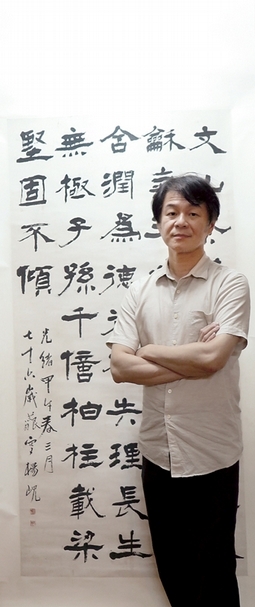 文山
龢
含潤為德失理長生
無極子孫千億柏柱載梁
堅固不傾
光緒甲午春三月
七十六歲藐翁楊峴